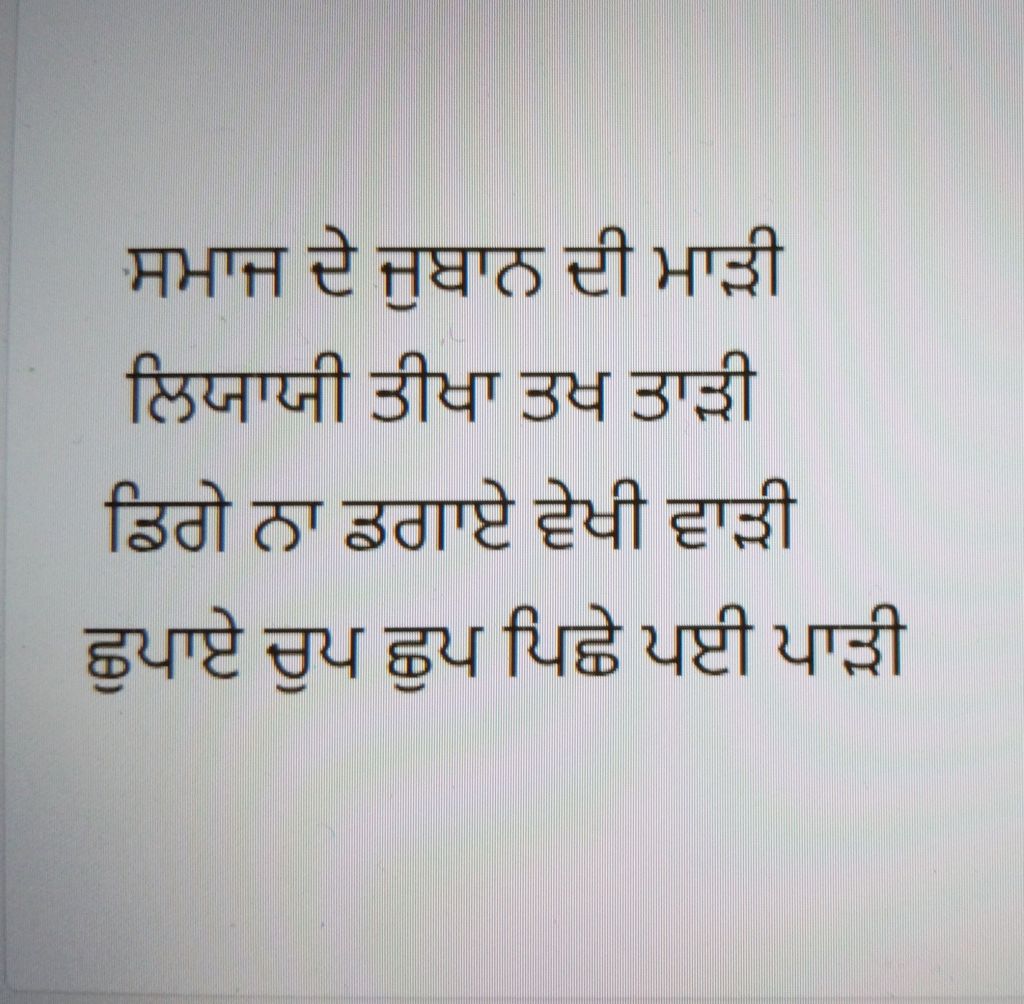 ਸਮਾਜ ਦੇ ਜੁਬਾਨ ਦੀ ਮਾੜੀ
ਲਿਯਾਯੀ ਤੀਖਾ ਤਖ ਤਾੜੀ
ਡਿਗੇ ਨਾ ਡਗਾਏ ਵੇਖੀ ਵਾੜੀ
ਛੁਪਾਏ ਚੁਪ ਛੁਪ ਪਿਛੇ ਪਈ ਪਾੜੀ